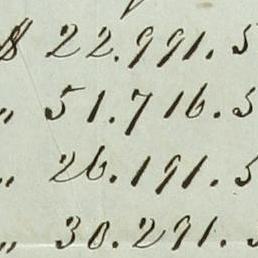 $ 22.991.5
„ 51.716.5
„ 26.191.5
„ 30.291.